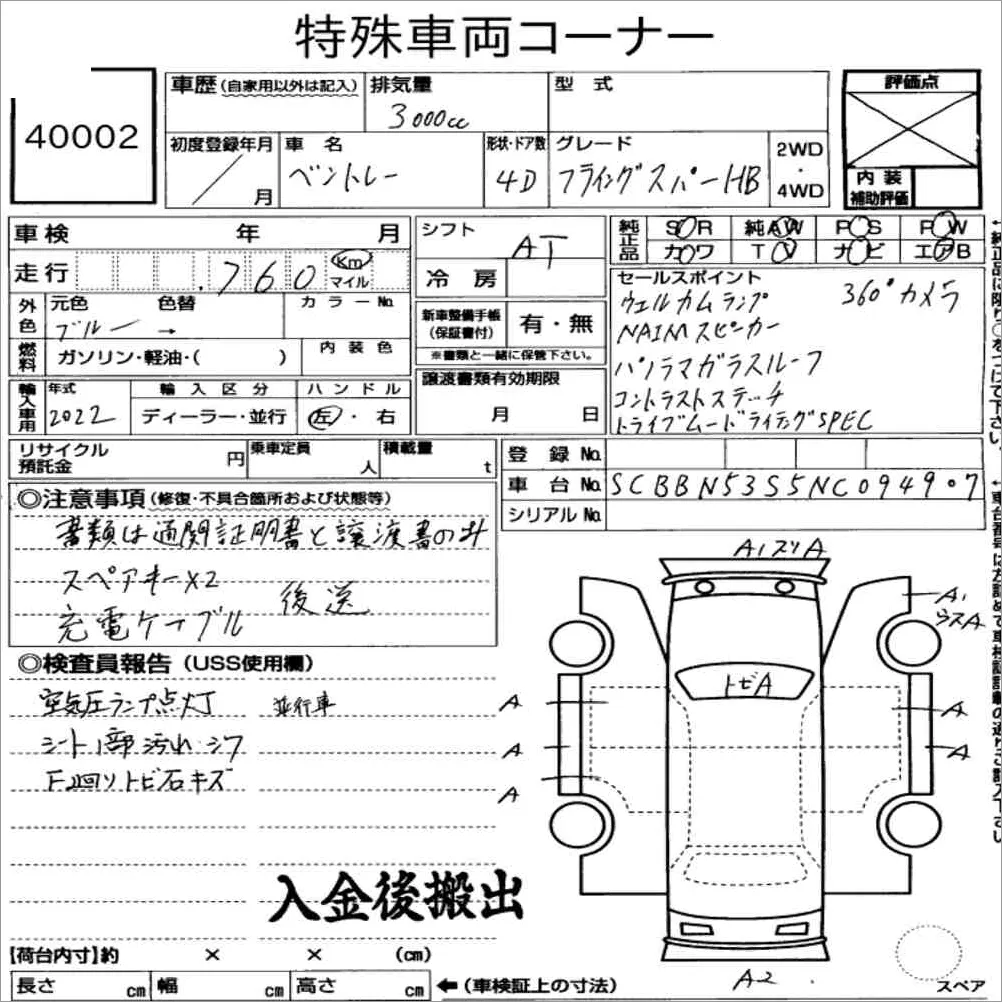 特殊車両コーナー
40002
車歴(自家用以外は記入) 排気量 型式
3000cc
初度登録年月 車名 形状・ドア数 グレード
/ 月 ベントレー 4D フライングスパーHB 2WD・4WD
評価点
内装補助評価
車検 年 月
走行 760 Km マイル
外色 元色 色替 カラーNo.
ブルー →
燃料 ガソリン・軽油・( ) 内装色
輸入車用 年式 輸入区分 ハンドル
2022 ディーラー・並行 左・右
シフト AT
冷房
新車整備手帳(保証書付) 有・無
※書類と一緒に保管下さい。
譲渡書類有効期限
月 日
純正品 SR 純AW PS PW
カワ TV ナビ エアB
セールスポイント
ウェルカムランプ 360°カメラ
NAIMスピーカー
パノラマガラスルーフ
コントラストステッチ
ドライブムードライティングSPEC
リサイクル預託金 円 乗車定員 人 積載量 t
登録No.
車台No. SCBBN53S5NC094907
シリアルNo.
◎注意事項(修復・不具合箇所および状態等)
書類は通関証明書と譲渡書のみ
スペアキーX2
後送
充電ケーブル
◎検査員報告(USS使用欄)
空気圧ランプ点灯 並行車
シート1部汚れ シワ
F廻りトビ石キズ
入金後搬出
A1スリA
A1
ウスA
トビA
A
A
A
A
A
A2.
スペア
【荷台内寸】約 × × (cm)
長さ cm 幅 cm 高さ cm ←(車検証上の寸法)